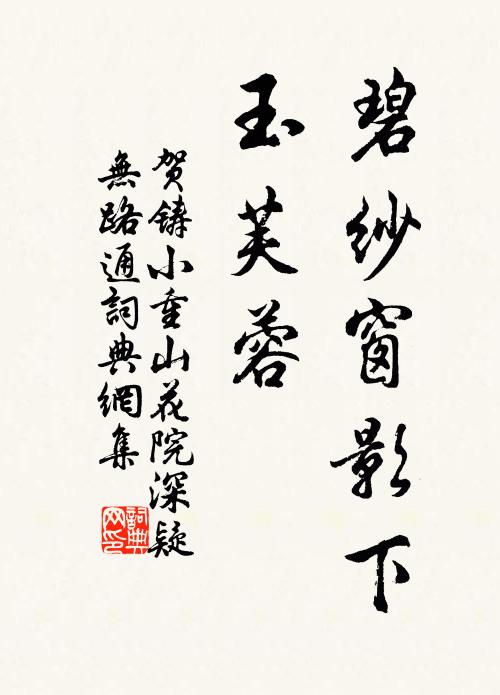 碧纱窗影下
玉芙蓉
贺铸小重山花院深疑
無路通詞典網集
詞典网印